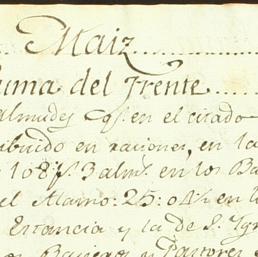 Maiz
suma del frente
almudes qe. en el citado
ribuido en raciones, en la
108fs. 3 alms. en los Ba
el Alamo: 25: 0 4/2 en l
Estancia y la de S. Ign
os Baqueros y Pastores